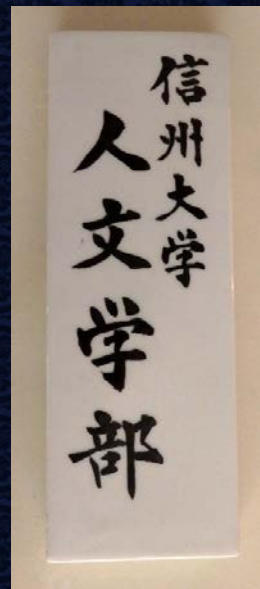 信州大学
人文学部